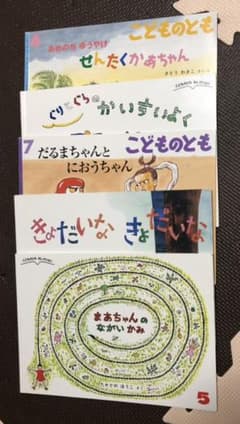 こどものとも
あめのち ゆうやけ
せんたくかあちゃん
さとう わきこ
ぐりとぐらの
かいすいよく
7
こどものとも
だるまちゃんと
におうちゃん
きょだいな きょだいな
まあちゃんの
ながい かみ
たかどの ほうこ
5